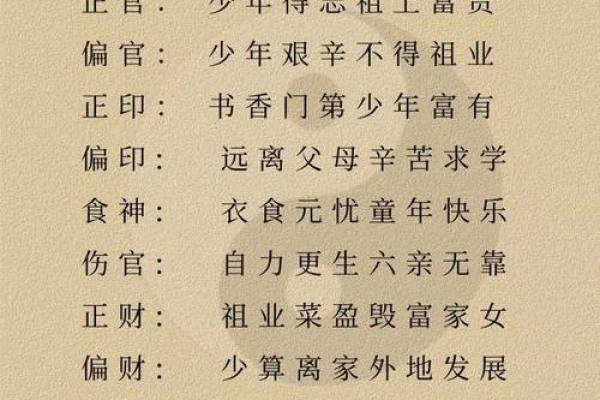 正官：少年得志祖上富贵
偏官：少年艰辛不得祖业
正印：书香门第少年富有
偏印：远离父母辛苦求学
食神：衣食元忧童年快乐
伤官：自力更生六亲无靠
正财：祖业菜盈毁富家女
偏财：少算离家外地发展